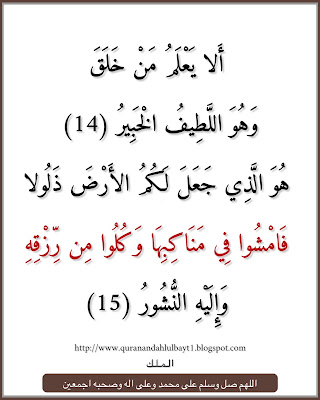 أَلَا يَعْلَمُ مَنْ خَلَقَ
وَهُوَ اللَّطِيفُ الْخَبِيرُ (14)
هُوَ الَّذِي جَعَلَ لَكُمُ الأَرْضَ ذَلُولا
فَامْشُوا فِي مَنَاكِبِهَا وَكُلُوا مِن رِّزْقِهِ
وَإِلَيْهِ النُّشُورُ (15)
http://www.quranandahlulbayt1.blogspot.com
الملك
اللهم صل وسلم على محمد وعلى اله وصحبه اجمعين